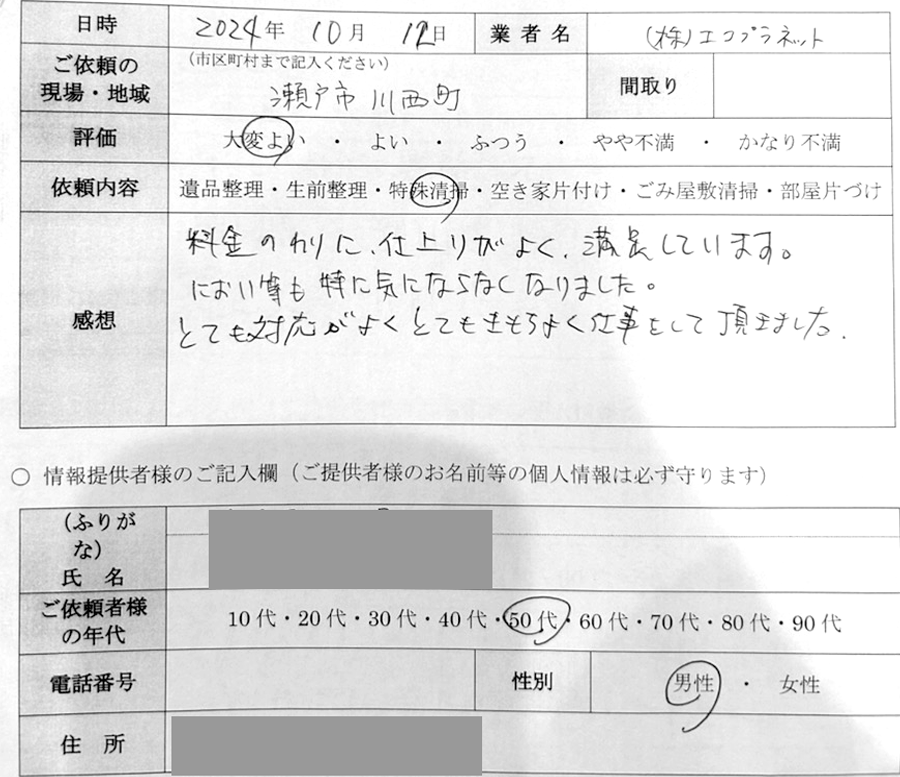 日時 2024年 10月 12日 業者名 (株)エコプラネット
ご依頼の現場・地域 (市区町村まで記入ください) 瀬戸市 川西町 間取り
評価 大変よい ・ よい ・ ふつう ・ やや不満 ・ かなり不満
依頼内容 遺品整理・生前整理・特殊清掃・空き家片付け・ごみ屋敷清掃・部屋片づけ
感想
料金のわりに、仕上りがよく、満足しています。
におい等も特に気にならなくなりました。
とても対応がよくとてもきもちよく仕事をして頂きました.
○ 情報提供者様のご記入欄（ご提供者様のお名前等の個人情報は必ず守ります）
(ふりがな)
氏 名
ご依頼者様の年代 10代・20代・30代・40代・50代・60代・70代・80代・90代
電話番号 性別 男性 ・ 女性
住 所